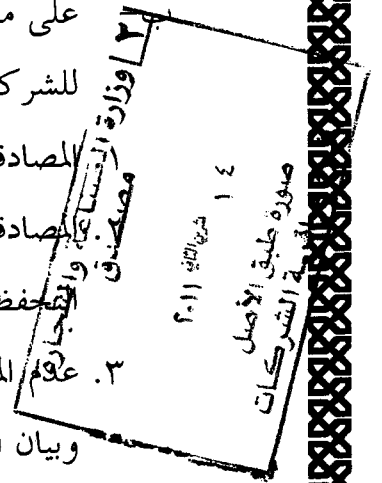 على
للشركـ
المصادقـ
المصادقـ
التحفظ
٣. عدم الـ
وبيان ا
وزارة الصناعة والتجارة
مصدق
١٤
تشرين الثاني ٢٠١١
صورة طبق الأصل
الشركات